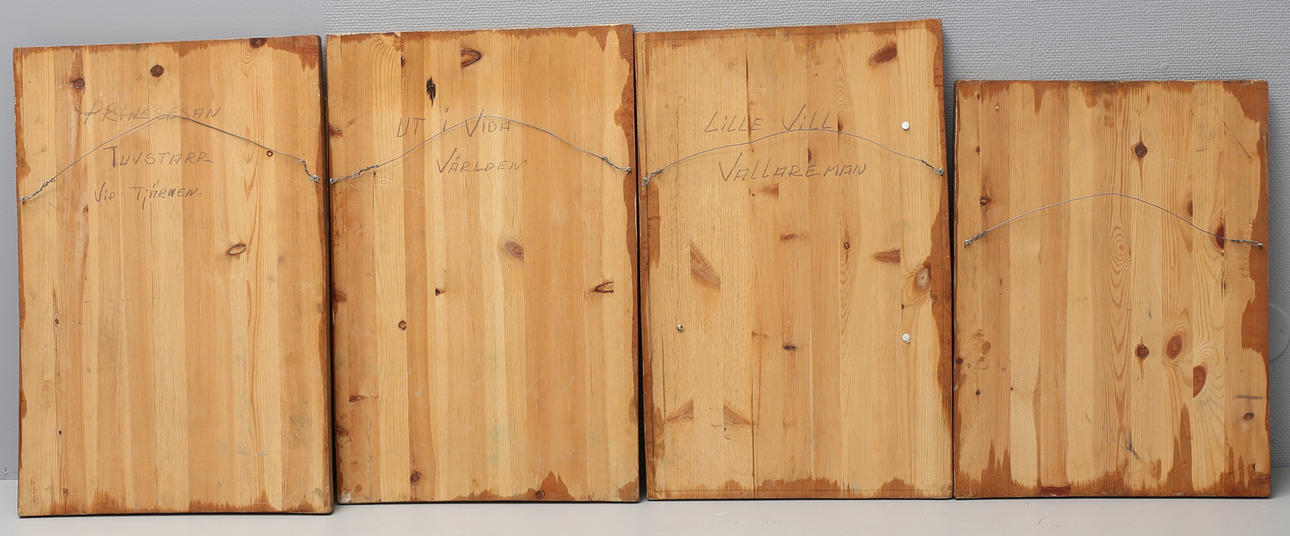 PRINSSESAN
TUVSTARR
Vid TJÄRNEN.
UT i ViDA
VÄRLDEN
LiLLE ViLL
VALLAREMAN